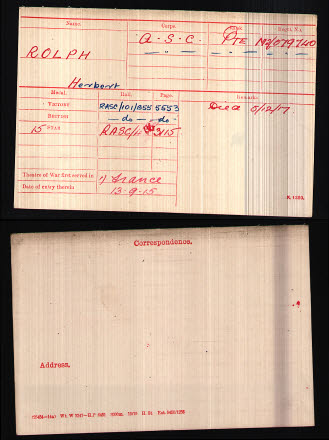 Name.
Corps.
Rank.
Regtl. No.
ROLPH
A.S.C.
Pte
M2/079740
Herbert
Medal.
Roll.
Page.
Remarks.
VICTORY
RASC/101/B55
5553
Died 5/2/17
BRITISH
—do—
—do—
15 STAR
RASC/
3115
Theatre of War first served in
1) France
Date of entry therein
13-9-15
K. 1380.
Correspondence.
Address.